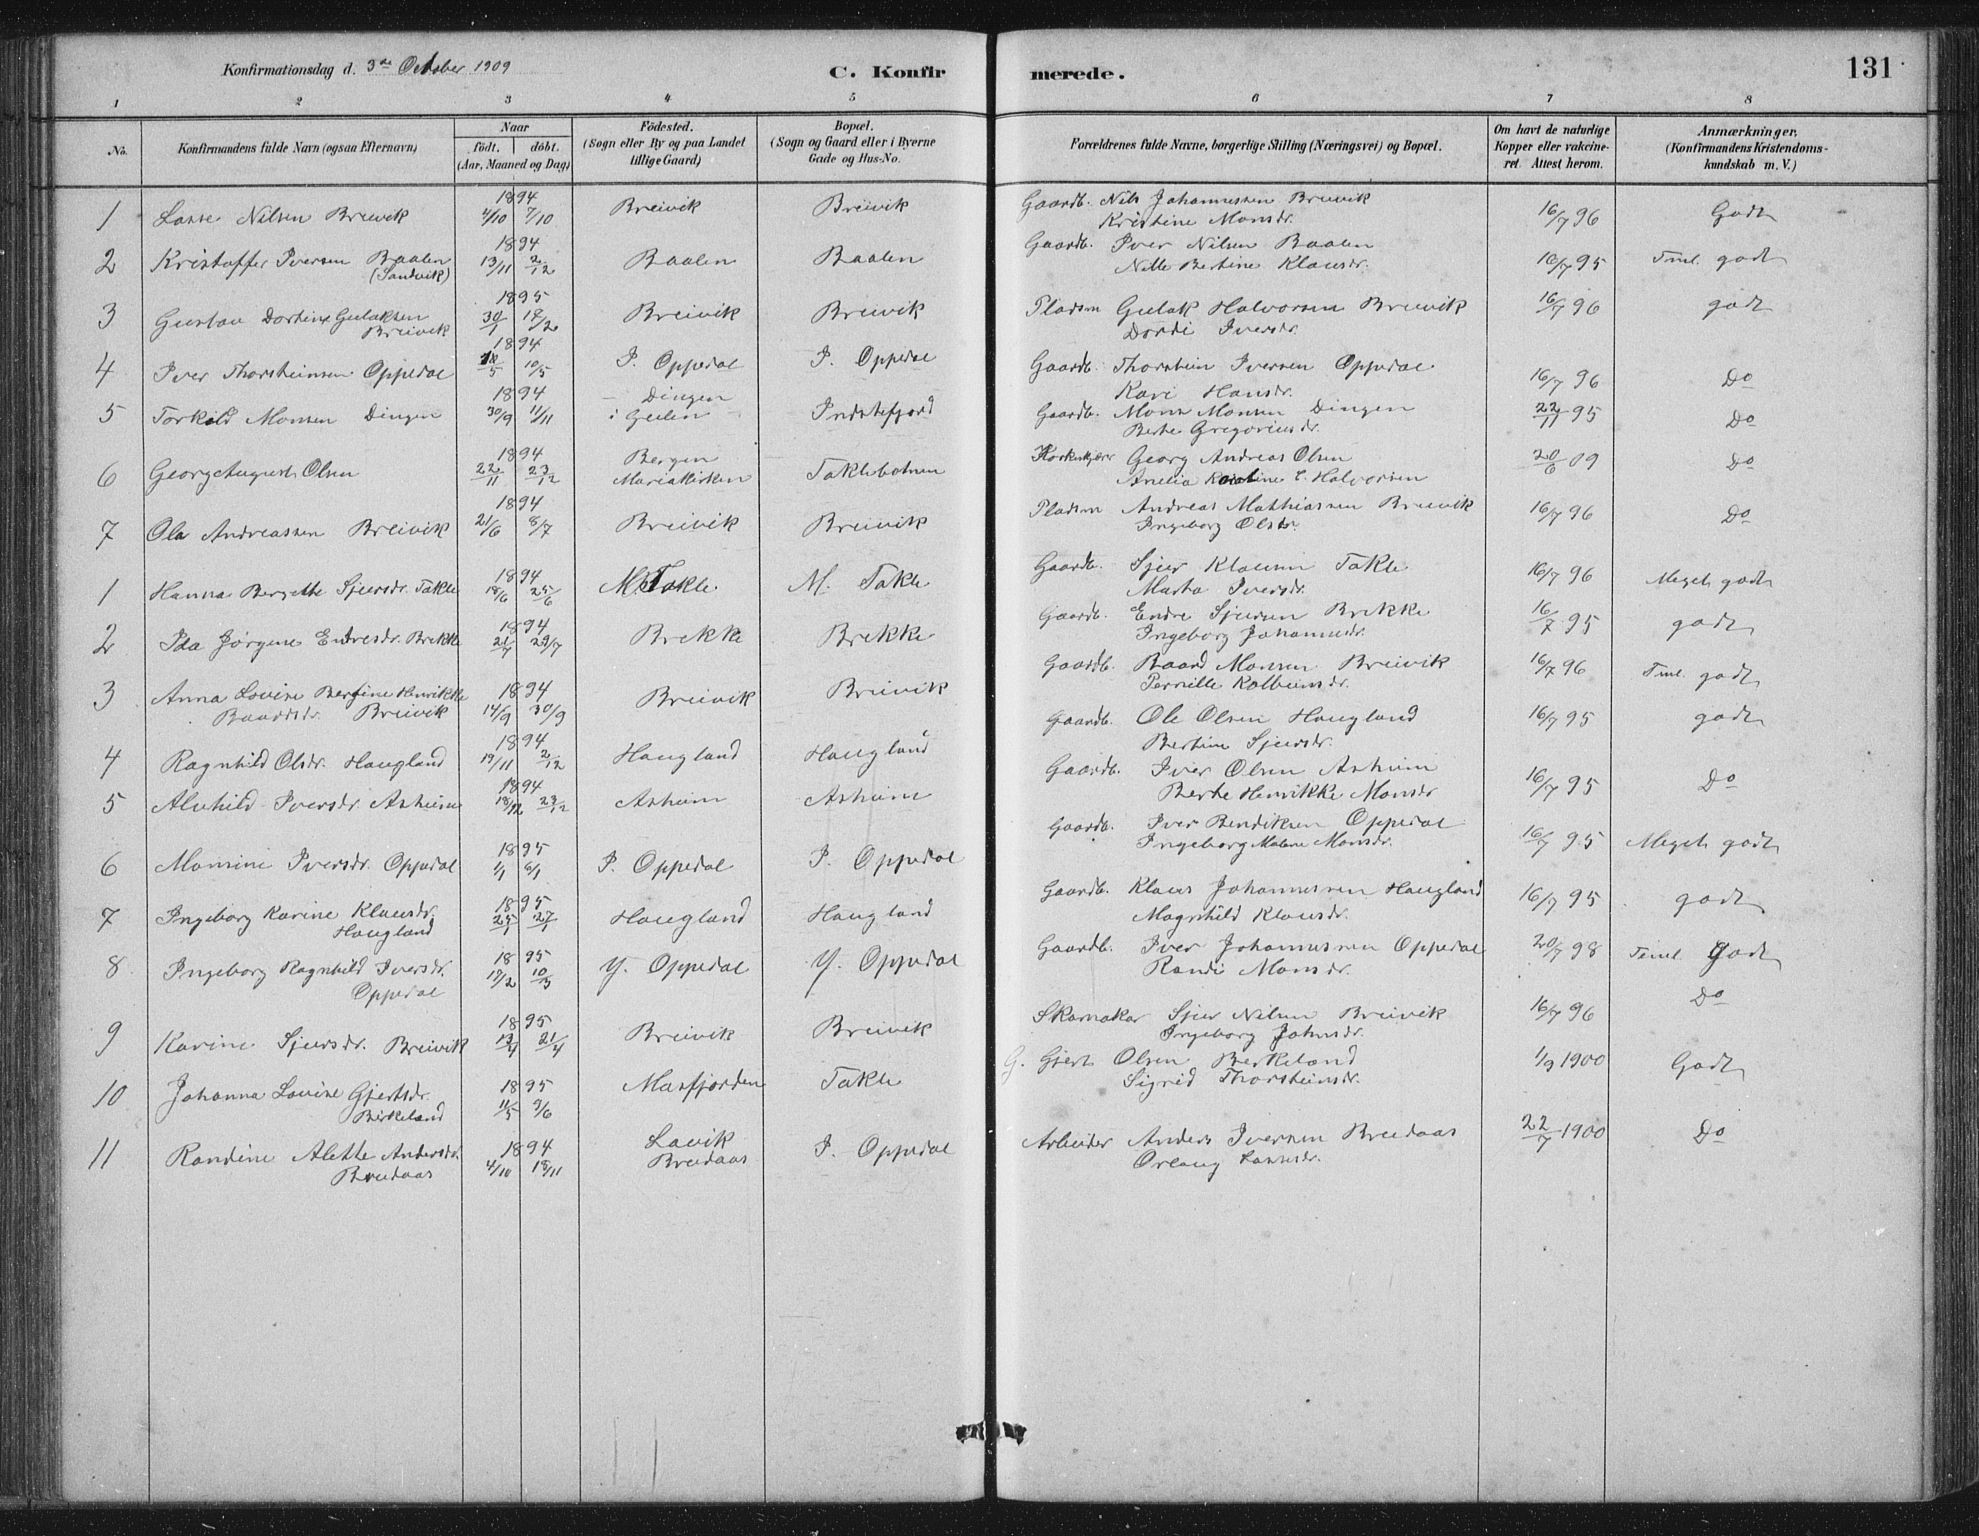 Konfirmationsdag d. 3de October 1909
C. Konfir
merede.
131
1 2 3 4 5 6 7 8
No.
Konfirmandens fulde Navn (ogsaa Efternavn)
Naar
født. døbt.
(Aar, Maaned og Dag)
Fødested.
(Sogn eller By og paa Landet
tillige Gaard)
Bopæl.
(Sogn og Gaard eller i Byerne
Gade og Hus-No.
Forældrenes fulde Navne, borgerlige Stilling (Næringsvei) og Bopæl.
Om havt de naturlige
Kopper eller vakcine-
ret. Attest herom.
Anmærkninger.
(Konfirmandens Kristendoms-
kundskab m. V.)
1 Lasse Nilsen Breivik 1894 4/10 7/10 Breivik Breivik Gaardb. Nils Johannessen Breivik 16/7 96 Godt
Kristine Monsdr.
2 Kristoffer Iversen Baalen 1894 13/11 2/12 Baalen Baalen Gaardb. Iver Nilsen Baalen 16/7 95 Tml. godt
(Sandvik) Nille Bertine Klausdr.
3 Gustav Dortinx Gulaksen 1895 30/1 17/2 Breivik Breivik Pladsm Gulak Halvorsen Breivik 16/7 96 godt
Breivik Dordi Iversdr.
4 Iver Thorsteinsen Oppedal 1894 10/5 I. Oppedal I. Oppedal Gaardb. Thorstein Iversen Oppedal 16/7 96 Do
Kari Hansdr.
5 Torkeld Monsen Dingen 1894 30/9 11/11 Dingen Indstefjord Gaardb. Mons Monsen Dingen 22/11 95 Do
i Gulen Berte Gregoriusdr.
6 Georg August Olsen 1894 22/11 23/12 Bergen Taklebotnen Georg Andreas Olsen 20/6 09 Do
Mariakirken Anelia E. Halvorsen
7 Ola Andreassen Breivik 1894 21/6 8/7 Breivik Breivik Pladsm Andreas Mathiassen Breivik 16/7 96 Do
Ingeborg Olsdr.
1 Hanna Bergette Sjursdr. Takle 1894 18/6 25/6 M. Takle M. Takle Gaardb. Sjur Klausen Takle 16/7 96 Meget godt
Marta Iversdr.
2 Ida Jørgine Endresdr. Brekke 1894 21/7 29/7 Brekke Brekke Gaardb. Endre Sjursen Brekke 16/7 95 godt
Ingeborg Johannesdr.
3 Anna Lovise Bertine Henrikke 1894 14/9 30/9 Breivik Breivik Gaardb. Baard Monsen Breivik 16/7 96 Tml. godt
Baardsdr. Breivik Pernille Kolbeinsdr.
4 Ragnhild Olsdr. Haugland 1894 19/11 2/12 Haugland Haugland Gaardb. Ole Olsen Haugland 16/7 95 godt
Bertine Sjursdr.
5 Alvhild Iversdr Asheim 1894 18/12 23/12 Asheim Asheim Gaardb. Iver Olsen Asheim 16/7 95 Do
Berte Henrikke Monsdr
6 Monsine Iversdr. Oppedal 1895 1/1 6/1 I. Oppedal I. Oppedal Gaardb. Iver Bendiksen Oppedal 16/7 95 Meget godt
Ingeborg Malene Monsdr.
7 Ingeborg Karine Klausdr. 1895 25/1 27/1 Haugland Haugland Gaardb. Klaus Johannessen Haugland 16/7 95 godt
Haugland Magnhild Klausdr.
8 Ingeborg Ragnhild Iversdr. 1895 17/2 10/3 Y. Oppedal Y. Oppedal Gaardb. Iver Johannessen Oppedal 20/7 98 Tml. Godt
Oppedal Randi Monsdr.
9 Karine Sjursdr. Breivik 1895 13/4 21/4 Breivik Breivik Skomakar Sjur Nilsen Breivik 16/7 96 Do
Ingeborg Johnsdr.
10 Johanna Lovise Gjertsdr. 1895 11/5 3/6 Masfjorden Takle G. Gjert Olsen Berkeland 1/9 1900 Godt
Birkeland Sigrid Thorsteinsdr.
11 Randine Alette Andersdr. 1894 4/10 18/11 Lavik I. Oppedal Arbeider Anders Iversen Breidaas 22/7 1900 Do
Breidaas Breidaas Orlaug Lassesdr.